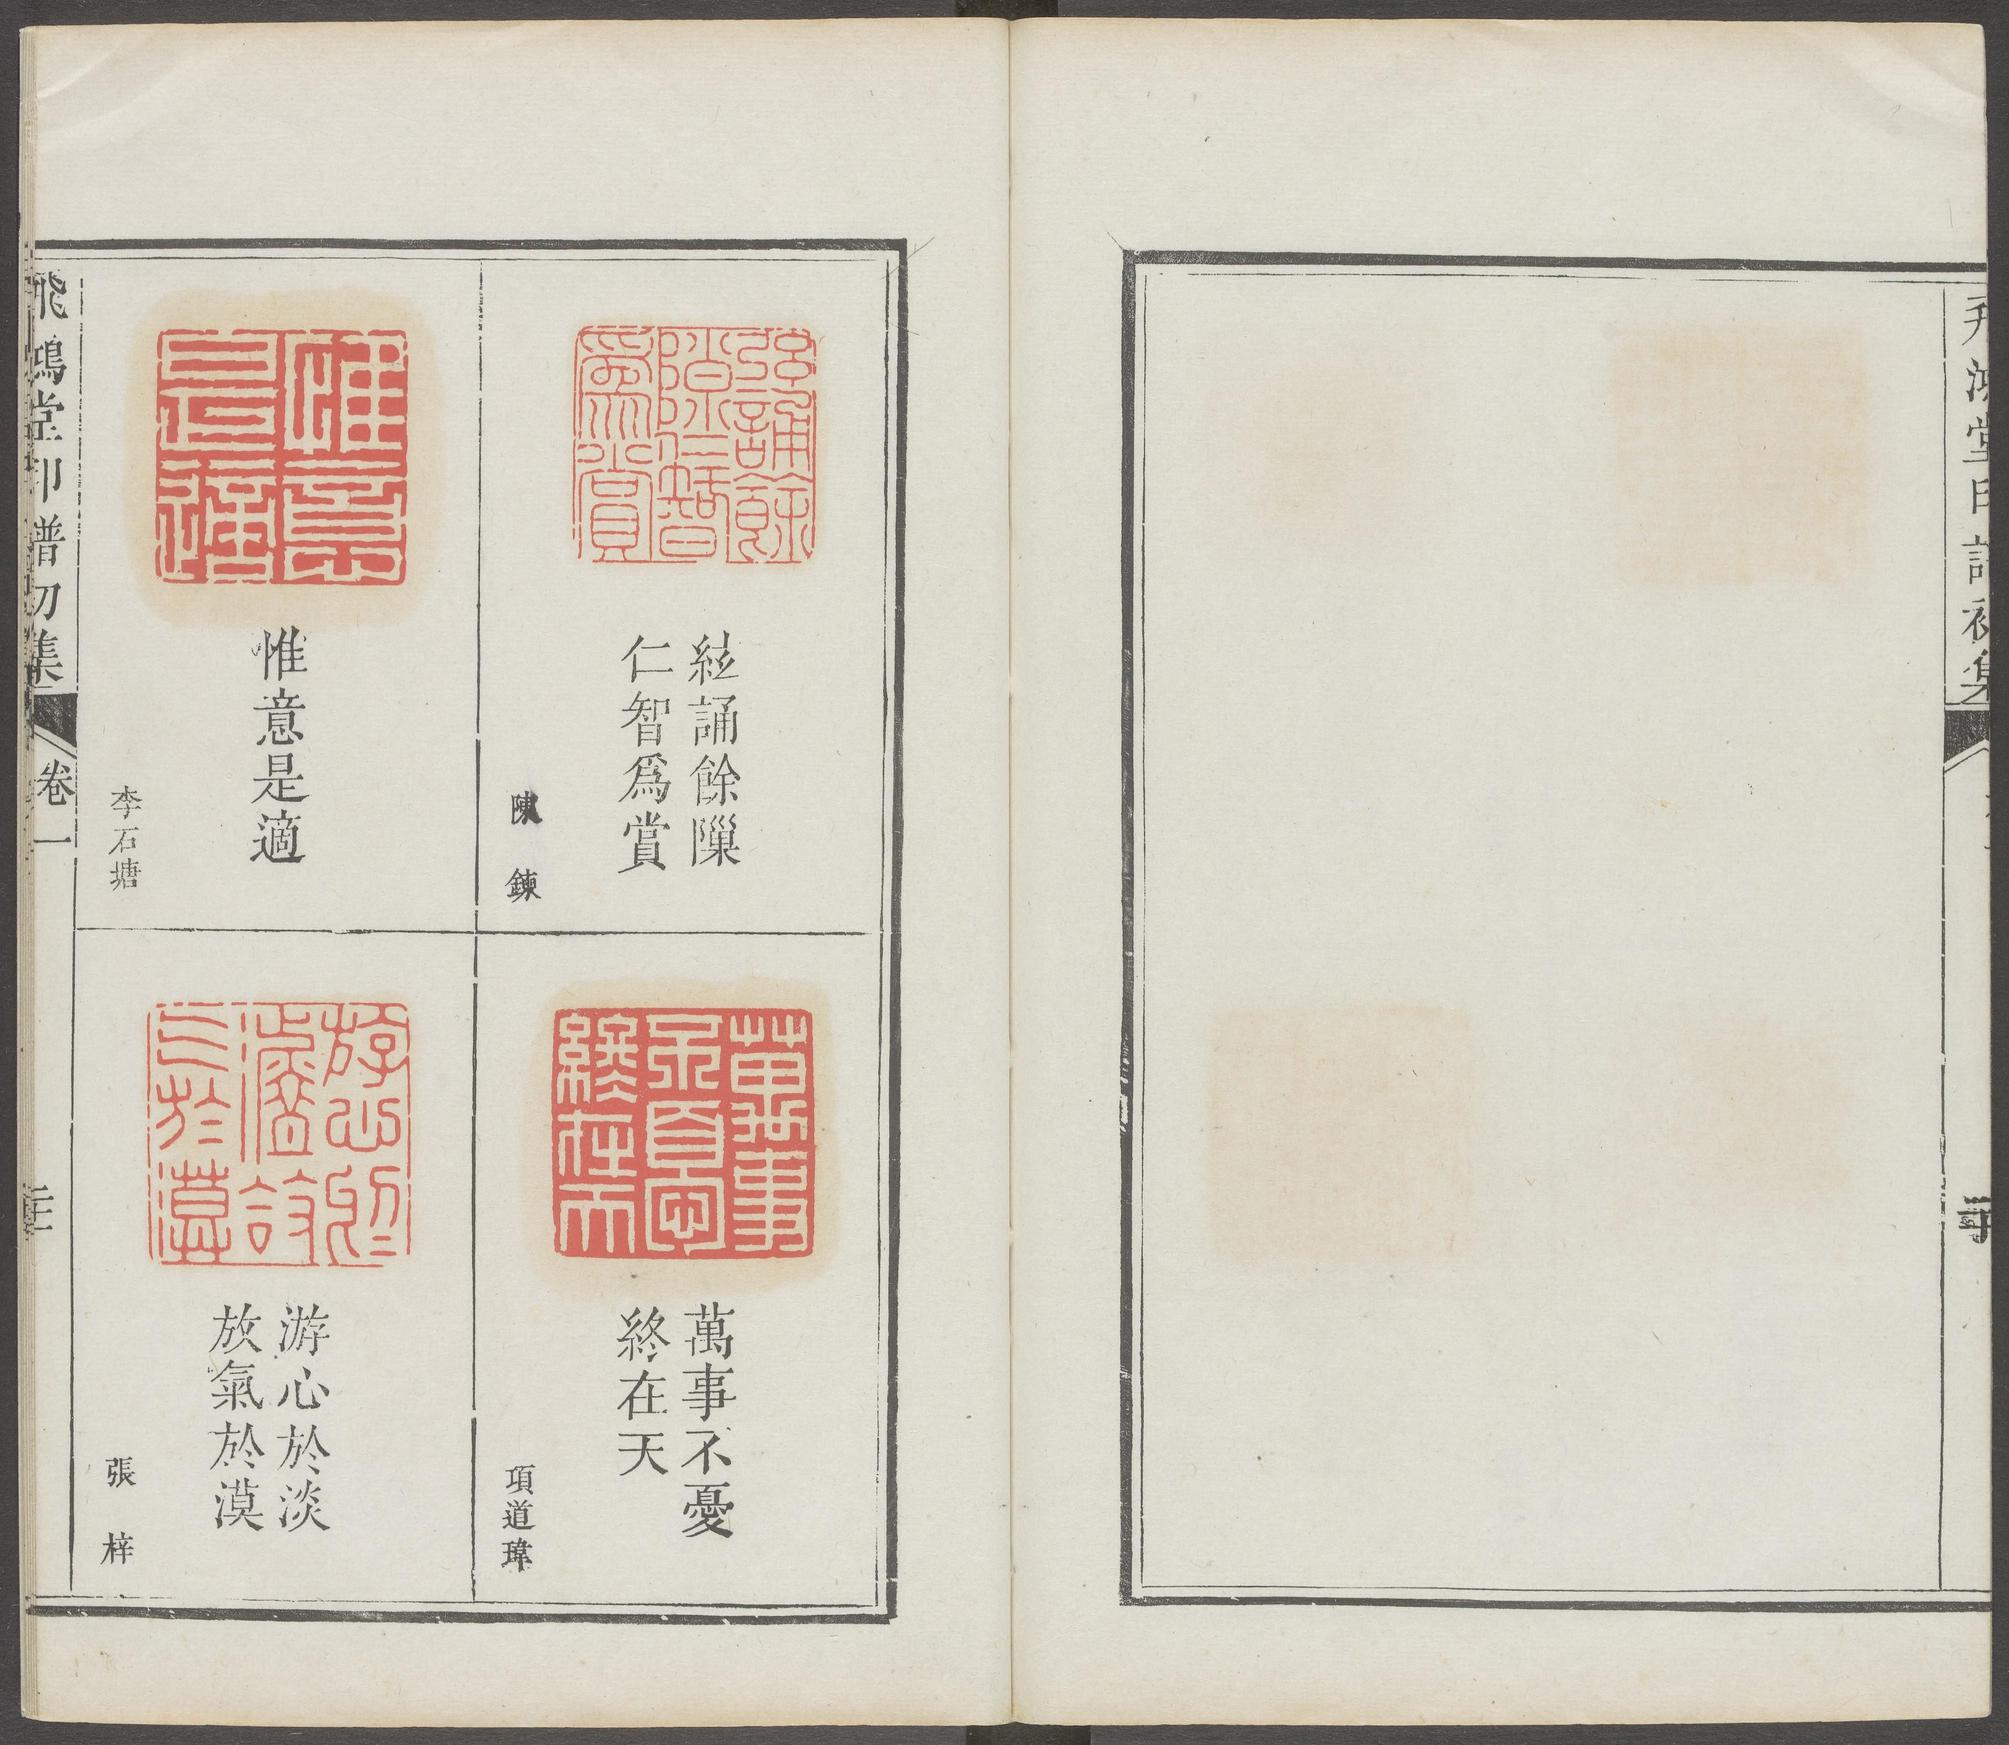 飛鴻堂印譜初集
絃誦餘隟
仁智為賞
陳鍊
惟意是適
李石塘
萬事不憂
終在天
項道瑋
游心於淡
放氣於漠
張梓
飛鴻堂印譜初集
卷一